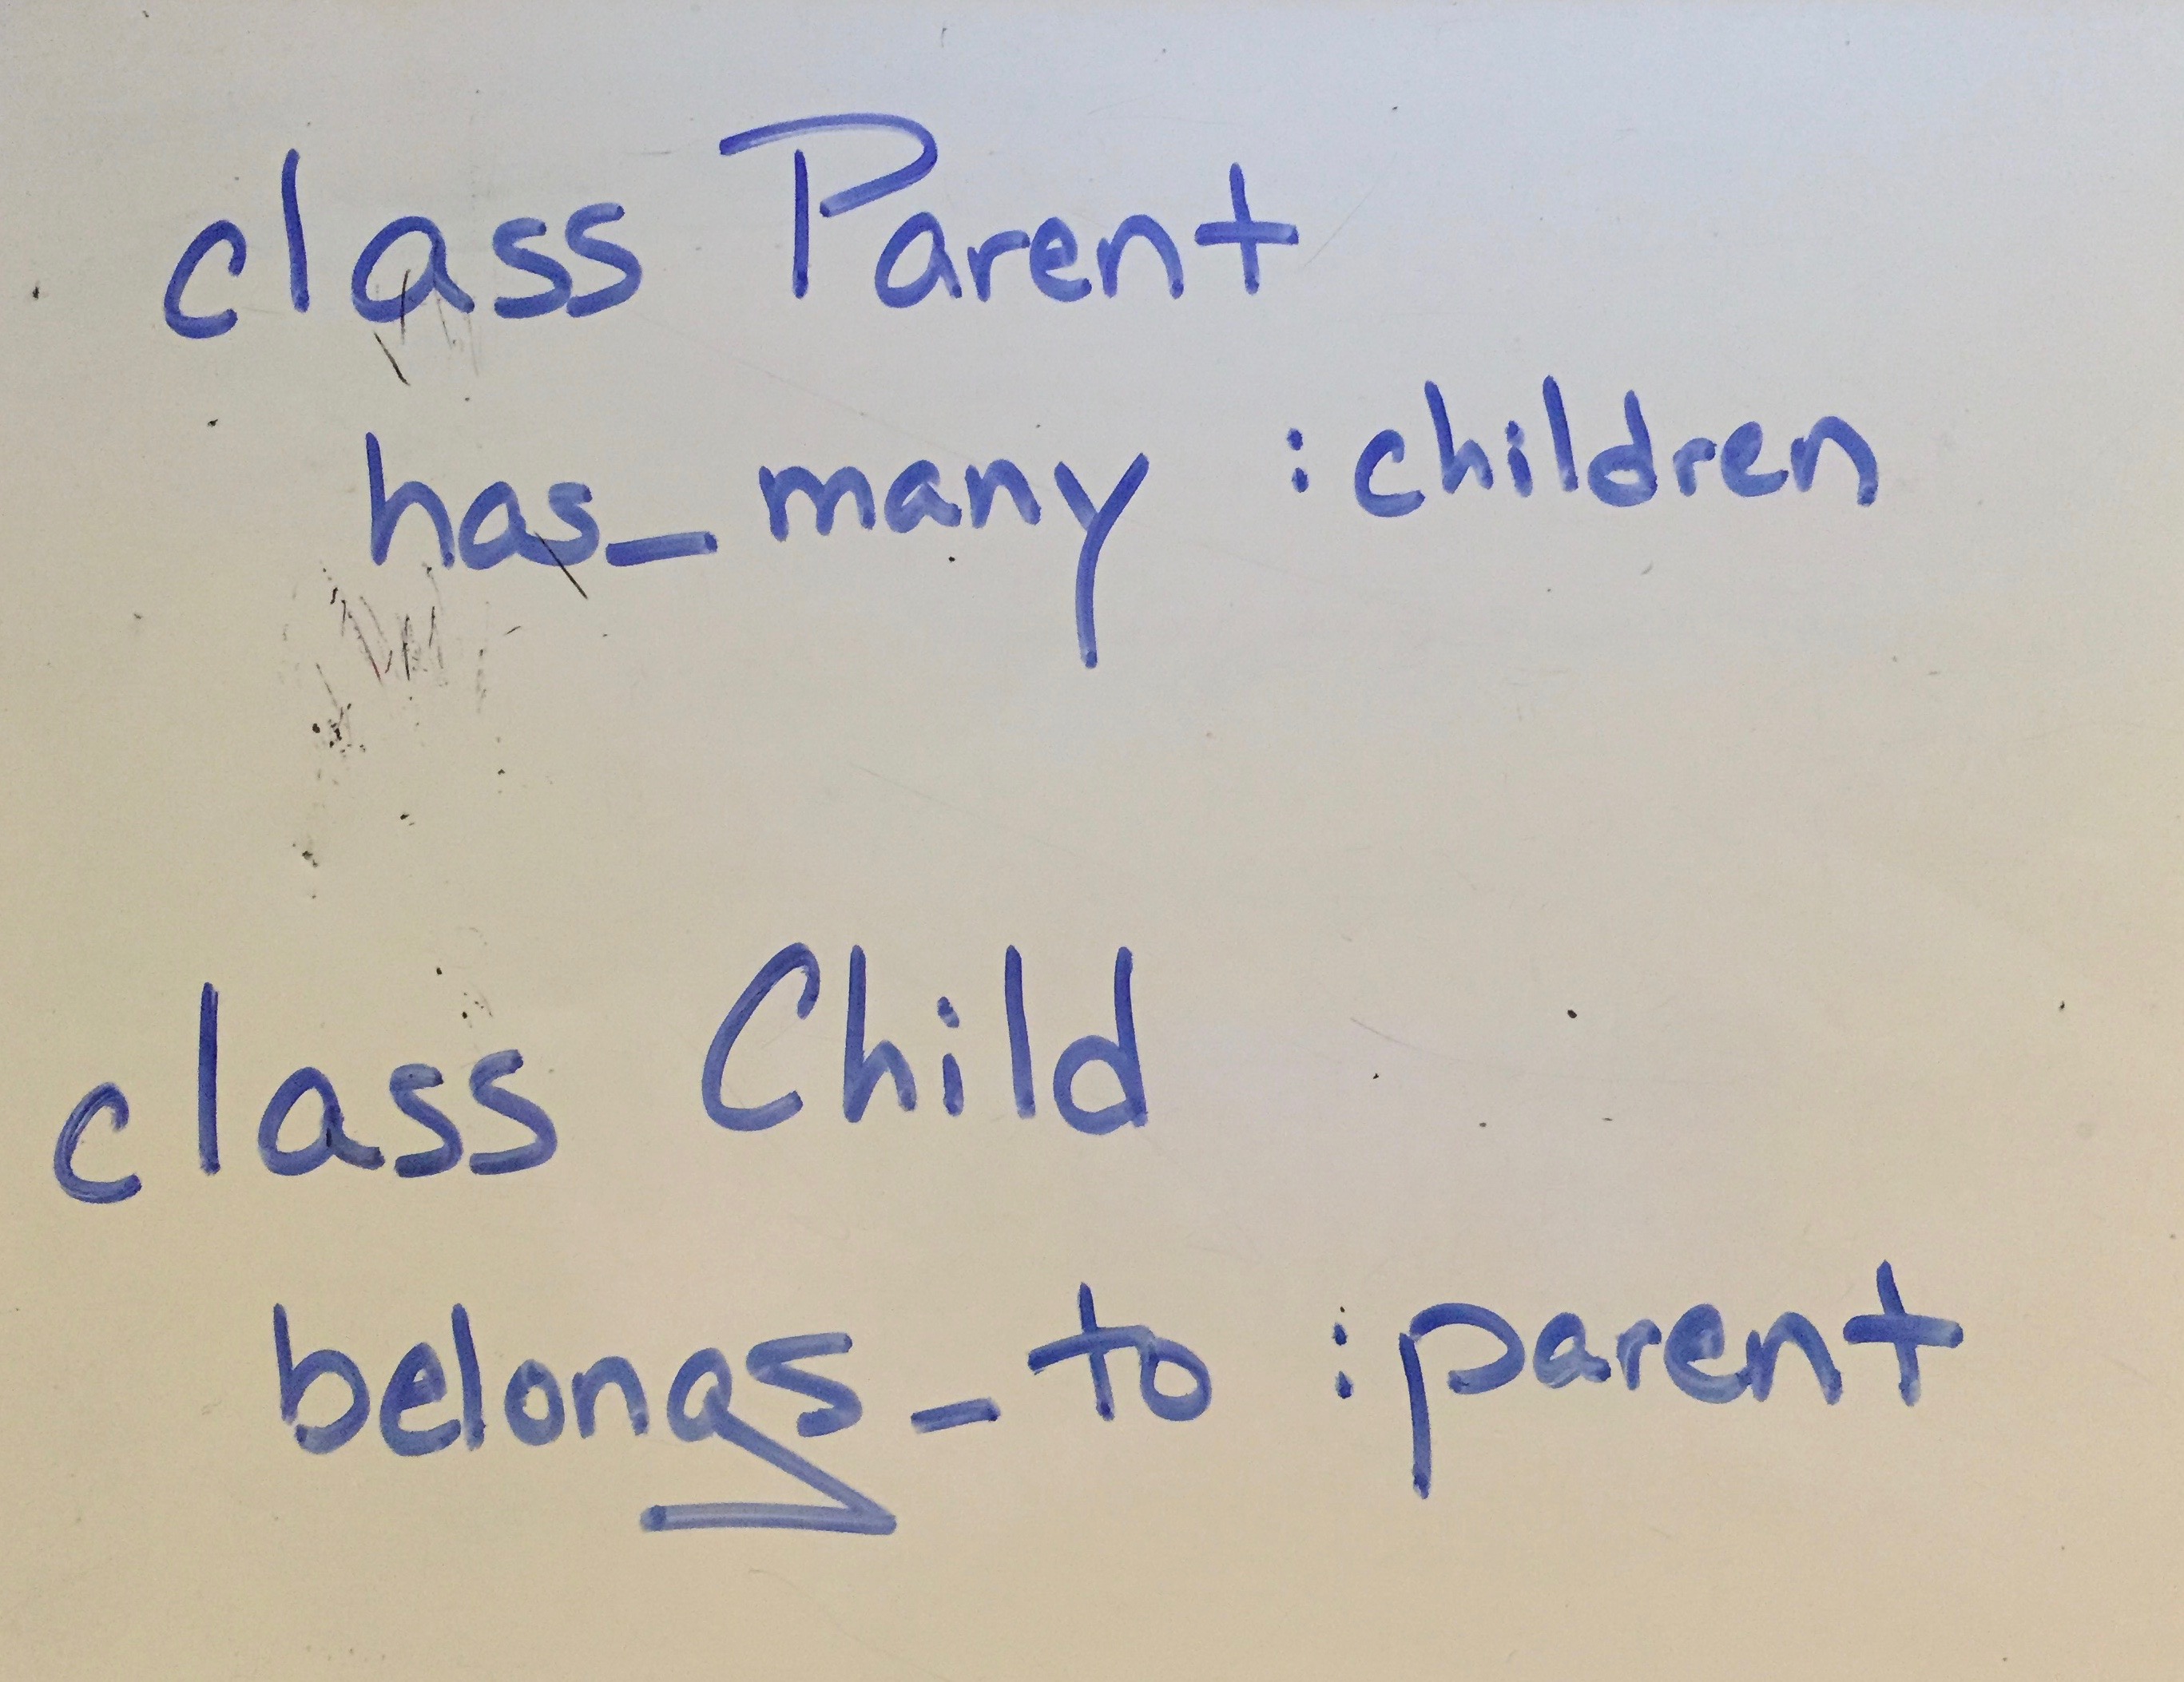 class Parent
has_many :children
class Child
belongs_to :parent